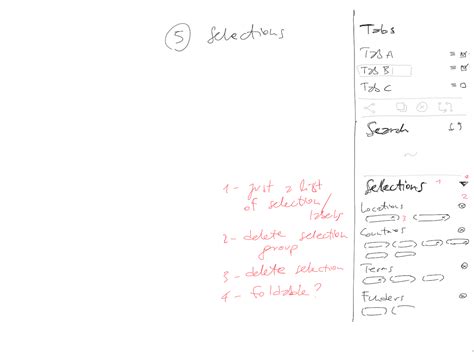 5 Selections
1 - just a list
of selection/
labels
2 - delete selection
group
3 - delete selection
4 - foldable?
Tabs
Tab A
Tab B
Tab C
Search
Selections 1 4
2
Locations
3
Countries
Terms
Funders